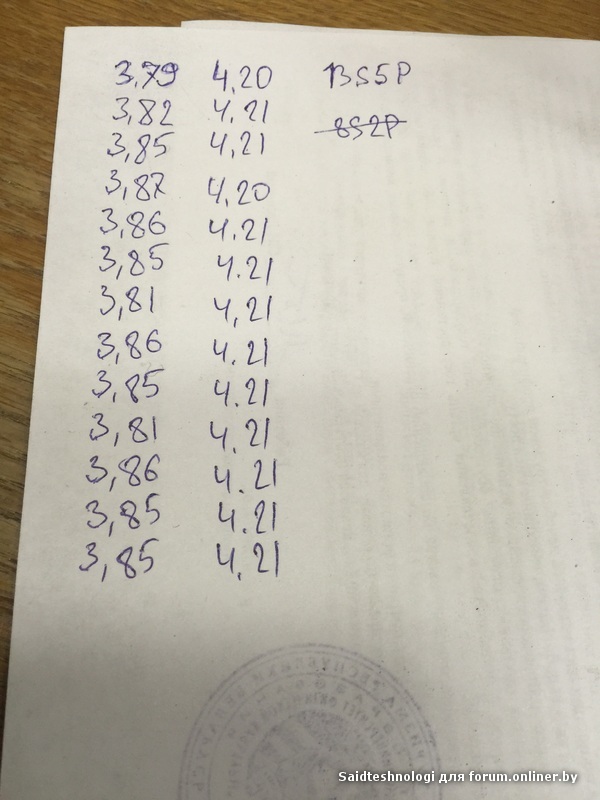 3,79 4,20 13S5P
3,82 4,21 8S2P
3,85 4,21
3,87 4,20
3,86 4.21
3,85 4.21
3,81 4,21
3,86 4.21
3,85 4.21
3,81 4.21
3,86 4.21
3,85 4.21
3,85 4,21
Saidteshnologi для forum.onliner.by